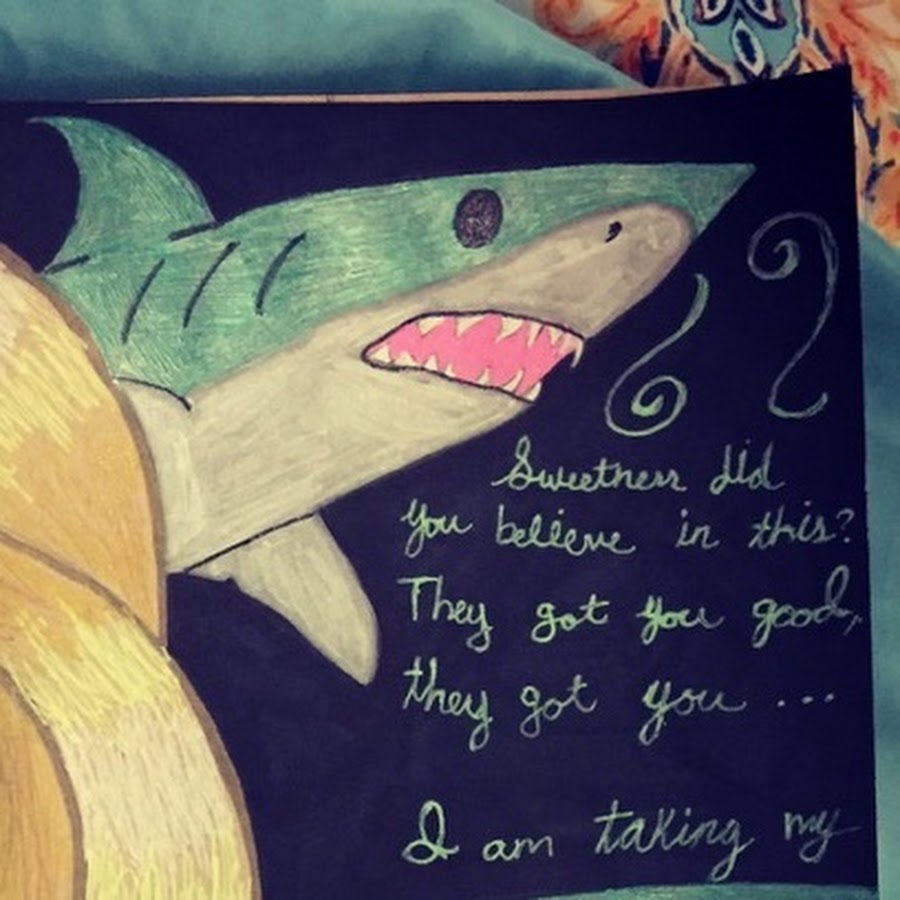 Sweetness did
you believe in this?
They got you good,
they got you ...
I am taking my